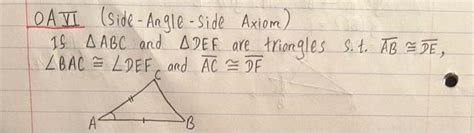 OAVI (Side-Angle-Side Axiom)
If △ABC and △DEF are triangles s.t. A̅B̅ ≅ D̅E̅,
∠BAC ≅ ∠DEF, and A̅C̅ ≅ D̅F̅
C
A
B